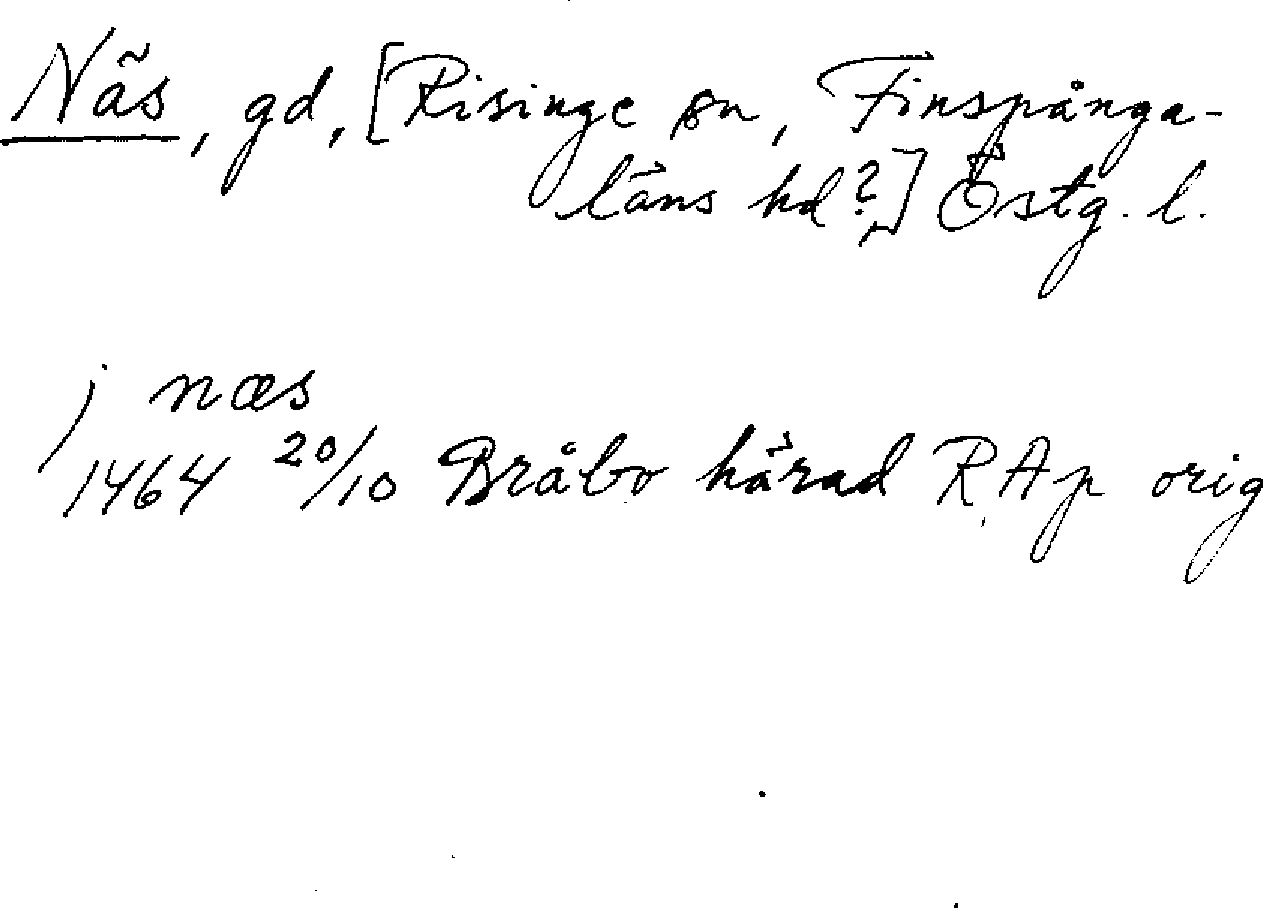 Näs, gd, [Risinge sn, Finspånga-
läns hd?,] Östg. l.
j næs
1464 20/10 Bråbo härad RAp orig